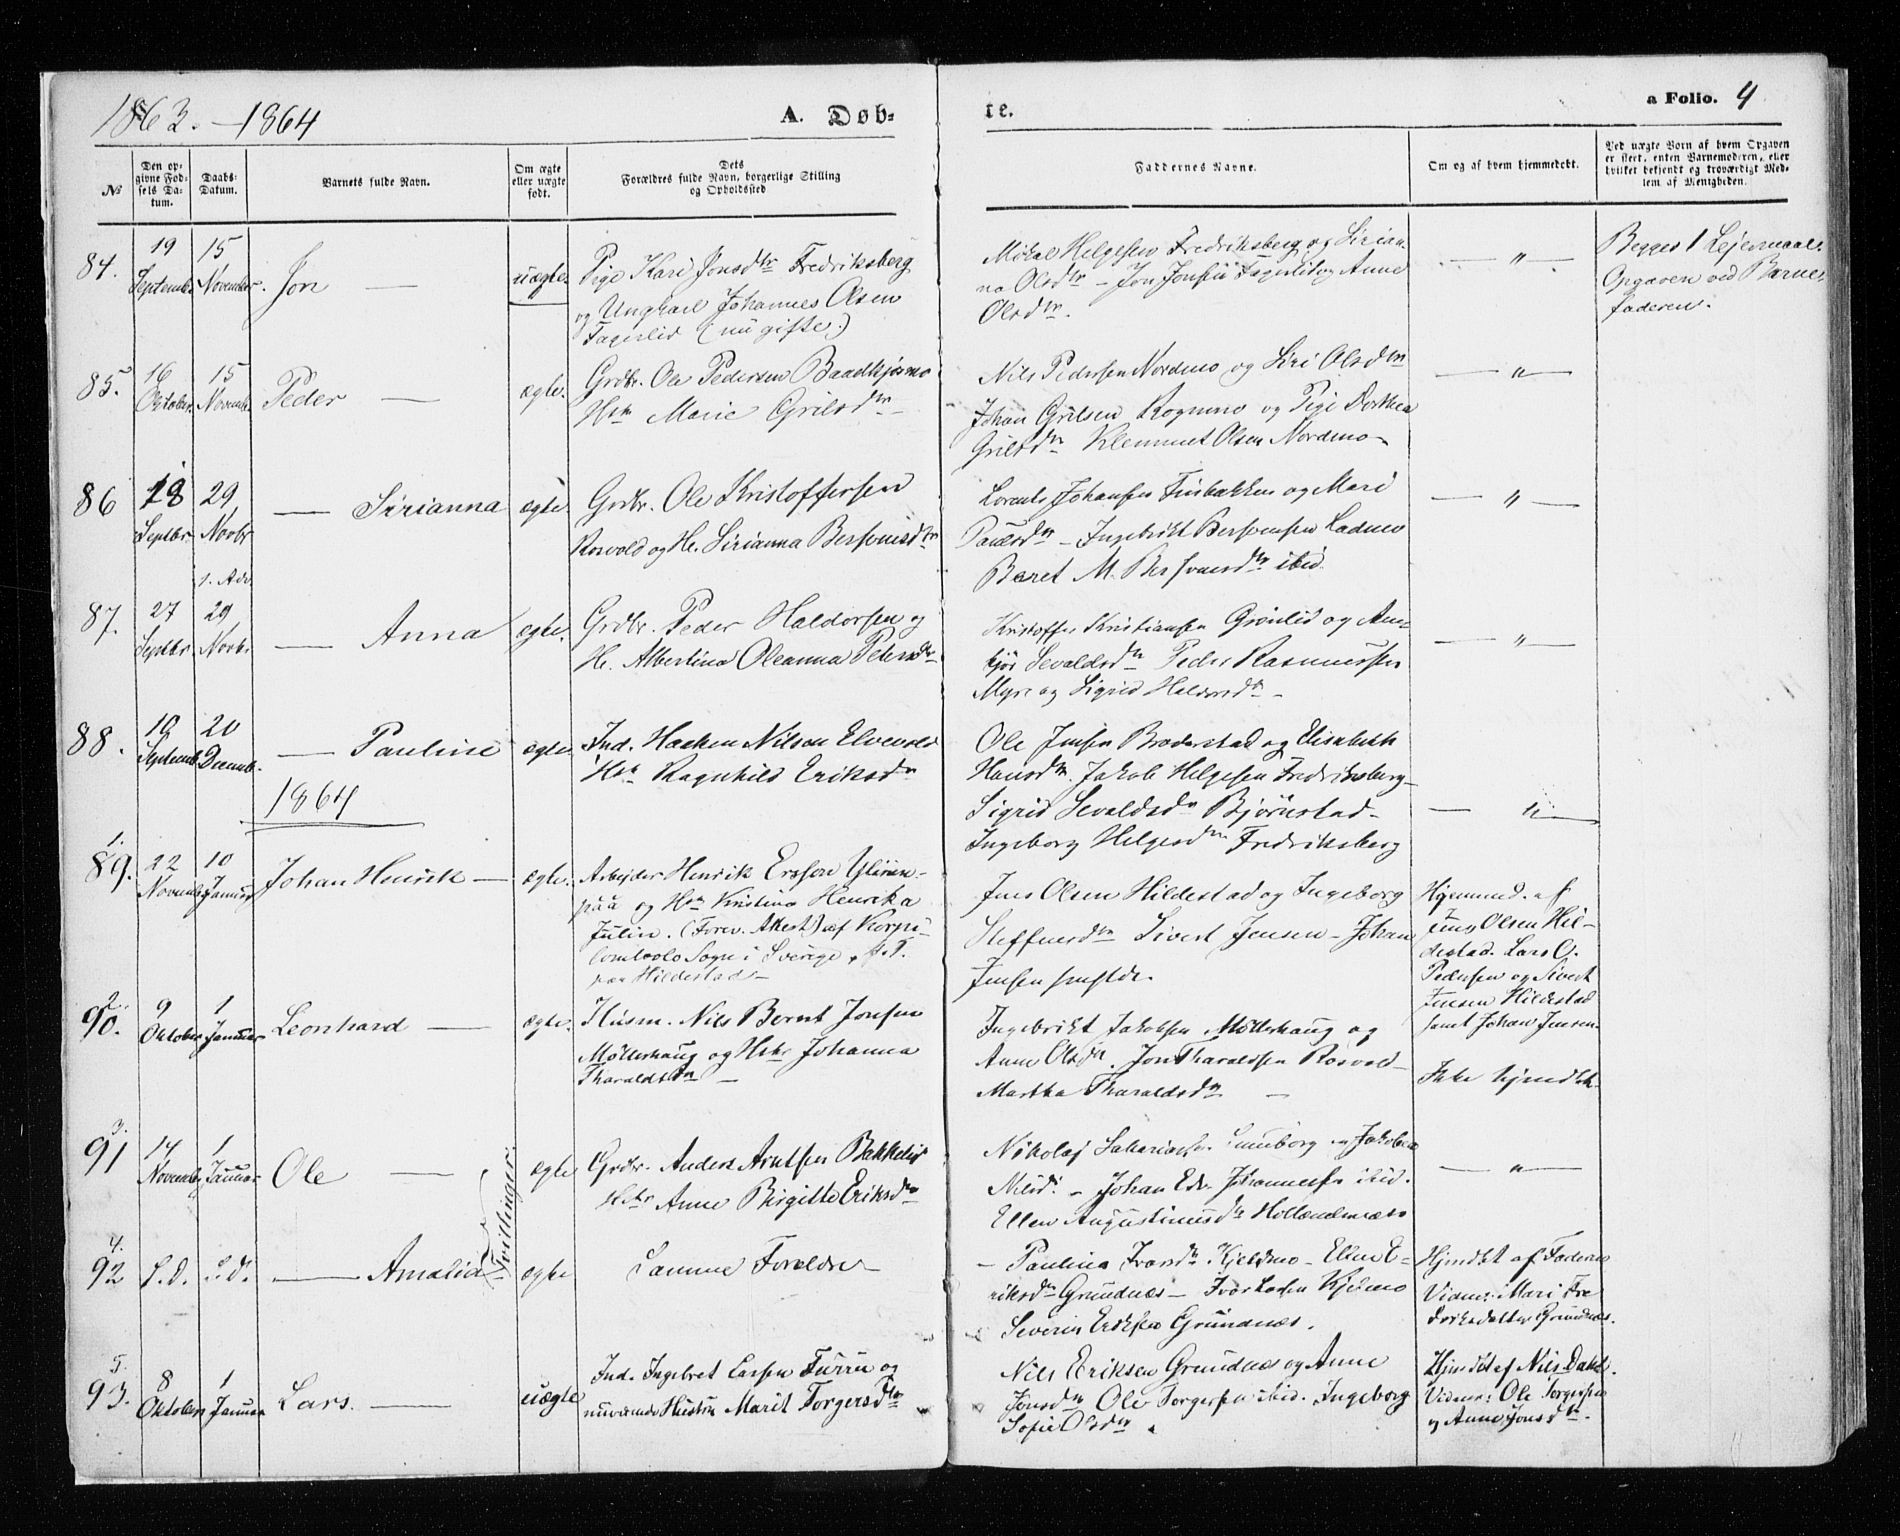 1863. - 1864
A. Døb-
te.
a Folio. 4
№
Den op-
givne Fød-
sels Da-
tum.
Daabs-
Datum.
Barnets fulde Navn.
Om ægte
eller uægte
født.
Dets
Forældres fulde Navn, borgerlige Stilling
og Opholdssted
Faddernes Navne.
Om og af hvem hjemmedøbt.
Ved uægte Born af hvem Opgaven
er skeet, enten Barnemoderen, eller
hvilket bekjendt og troværdigt Med-
lem af Menigheden.
84.
19
Septemb.
15
November.
Jon —
uægte.
Pige Kari Jonsdtr Fredriksberg
og Ungkarl Johannes Olsen
Fagerlid (nu gifte.)
Mikal Helgesen Fredriksberg og Sirian-
na Olsdtr - Jon Jonsen Fagerlid og Anne
Olsdtr.
— " —
Begges 1 Lejermaal.
Opgaven ved Barne-
faderen.
85.
16
Oktober
15
Novemb.
Peder —
ægte.
Grdbr. Ole Pedersen
Hstr Marie Grilsdtr
Nils Pedersen Nordmo og Siri Olsdtr
Johan Grilsen Rognmo og Pige Dorthea
Grilsdtr Klemmet Olsen Nordmo -
— " —
86
18
Septbr
29
Novbr
— Sirianna
ægte.
Grdbr. Ole Kristoffersen
Rosvold og H. Sirianna
Lorents Johansen og Mari
Paulsdtr - Ingebrikt
Beret M. ibid.
— " —
87.
27
Septbr.
1. Adv
29
Novbr.
— Anna
ægte.
Grdbr. Peder Haldorsen og
H. Albertina Oleanna Petersdtr
Kristoffer Kristiansen Grønlid og
Sevaldsdtr Peder Rasmussen
Myre og Sigrid Haldorsdtr -
— " —
88.
19
Septemb
20
Decemb.
— Pauline
ægte.
Ind. Haaken Nilsen Elvevold
Hstr Ragnhild Eriksdtr
Ole Jensen Brøderstad og Elisabeth
Hansdtr. Jakob Helgesen Fredriksberg -
Sigrid Sevaldsdtr Bjørnstad -
Ingeborg Helgesdtr Fredriksberg
— " —
1864
1.
89.
22
Novemb.
10
Januar
Johan Henrik —
ægte.
Arbejder Henrik Ersson
pää og Hstr Kristina Henrika
Julin. (Forev. Attest) af Korpi-
lombolo Sogn i Sverige, p. T.
paa Hildestad -
Jens Olsen Hildestad og Ingeborg
Steffensdtr Sivert Jensen - Johan
Jensen
Hjemmed. af
Jens Olsen Hil-
destad. Lars O.
Pedersen og Sivert
Jensen Hildestad
samt Johan Jensen.
2.
90.
9
Oktober
1
Januar
Leonhard —
ægte.
Husm. Nils Bernt Jonsen
Møllerhaug og Hstr Johanna
Tharaldsdtr —
Ingebrikt Jakobsen Møllerhaug og
Anne Olsdtr. Jon Tharaldsen Rosvold -
Martha Tharaldsdtr —
Ikke hjmdbt.
3.
91
14
Novemb.
1
Januar
Ole —
Tvillinger
ægte
Grdbr. Anders Arntsen Bakkelid
Hstr Anne Birgitte Eriksdtr
Nikolaj og
Nilsd. - Johan Edv. Johannesen ibid.
Ellen Augustinusdtr Hollændernæs
— " —
4.
92
S. D.
S. D.
— Amalia
ægte
Samme Forældre —
- Paulina Ivarsdtr. Kjeldmo - Ellen E-
riksdtr Grundnæs - Ivar Larsen
Severin Eriksen Grundnæs.
Hjmdbt af Faderen
Vidner: Mari Fre
driksdatter Grundnæs.
5.
93.
8
Oktober
1
Januar
Lars. —
uægte
Ind. Ingebret Larsen Furru og
nuværende Hustru Marit Torgersdtr
Nils Eriksen Grundnæs og Anne
Jonsdtr Ole Torgersen ibid. Ingeborg
Sofie Olsdtr.
Hjmdbt af Nils Dahl.
Vidner: Ole Torgersen
og Anne Jonsdtr.